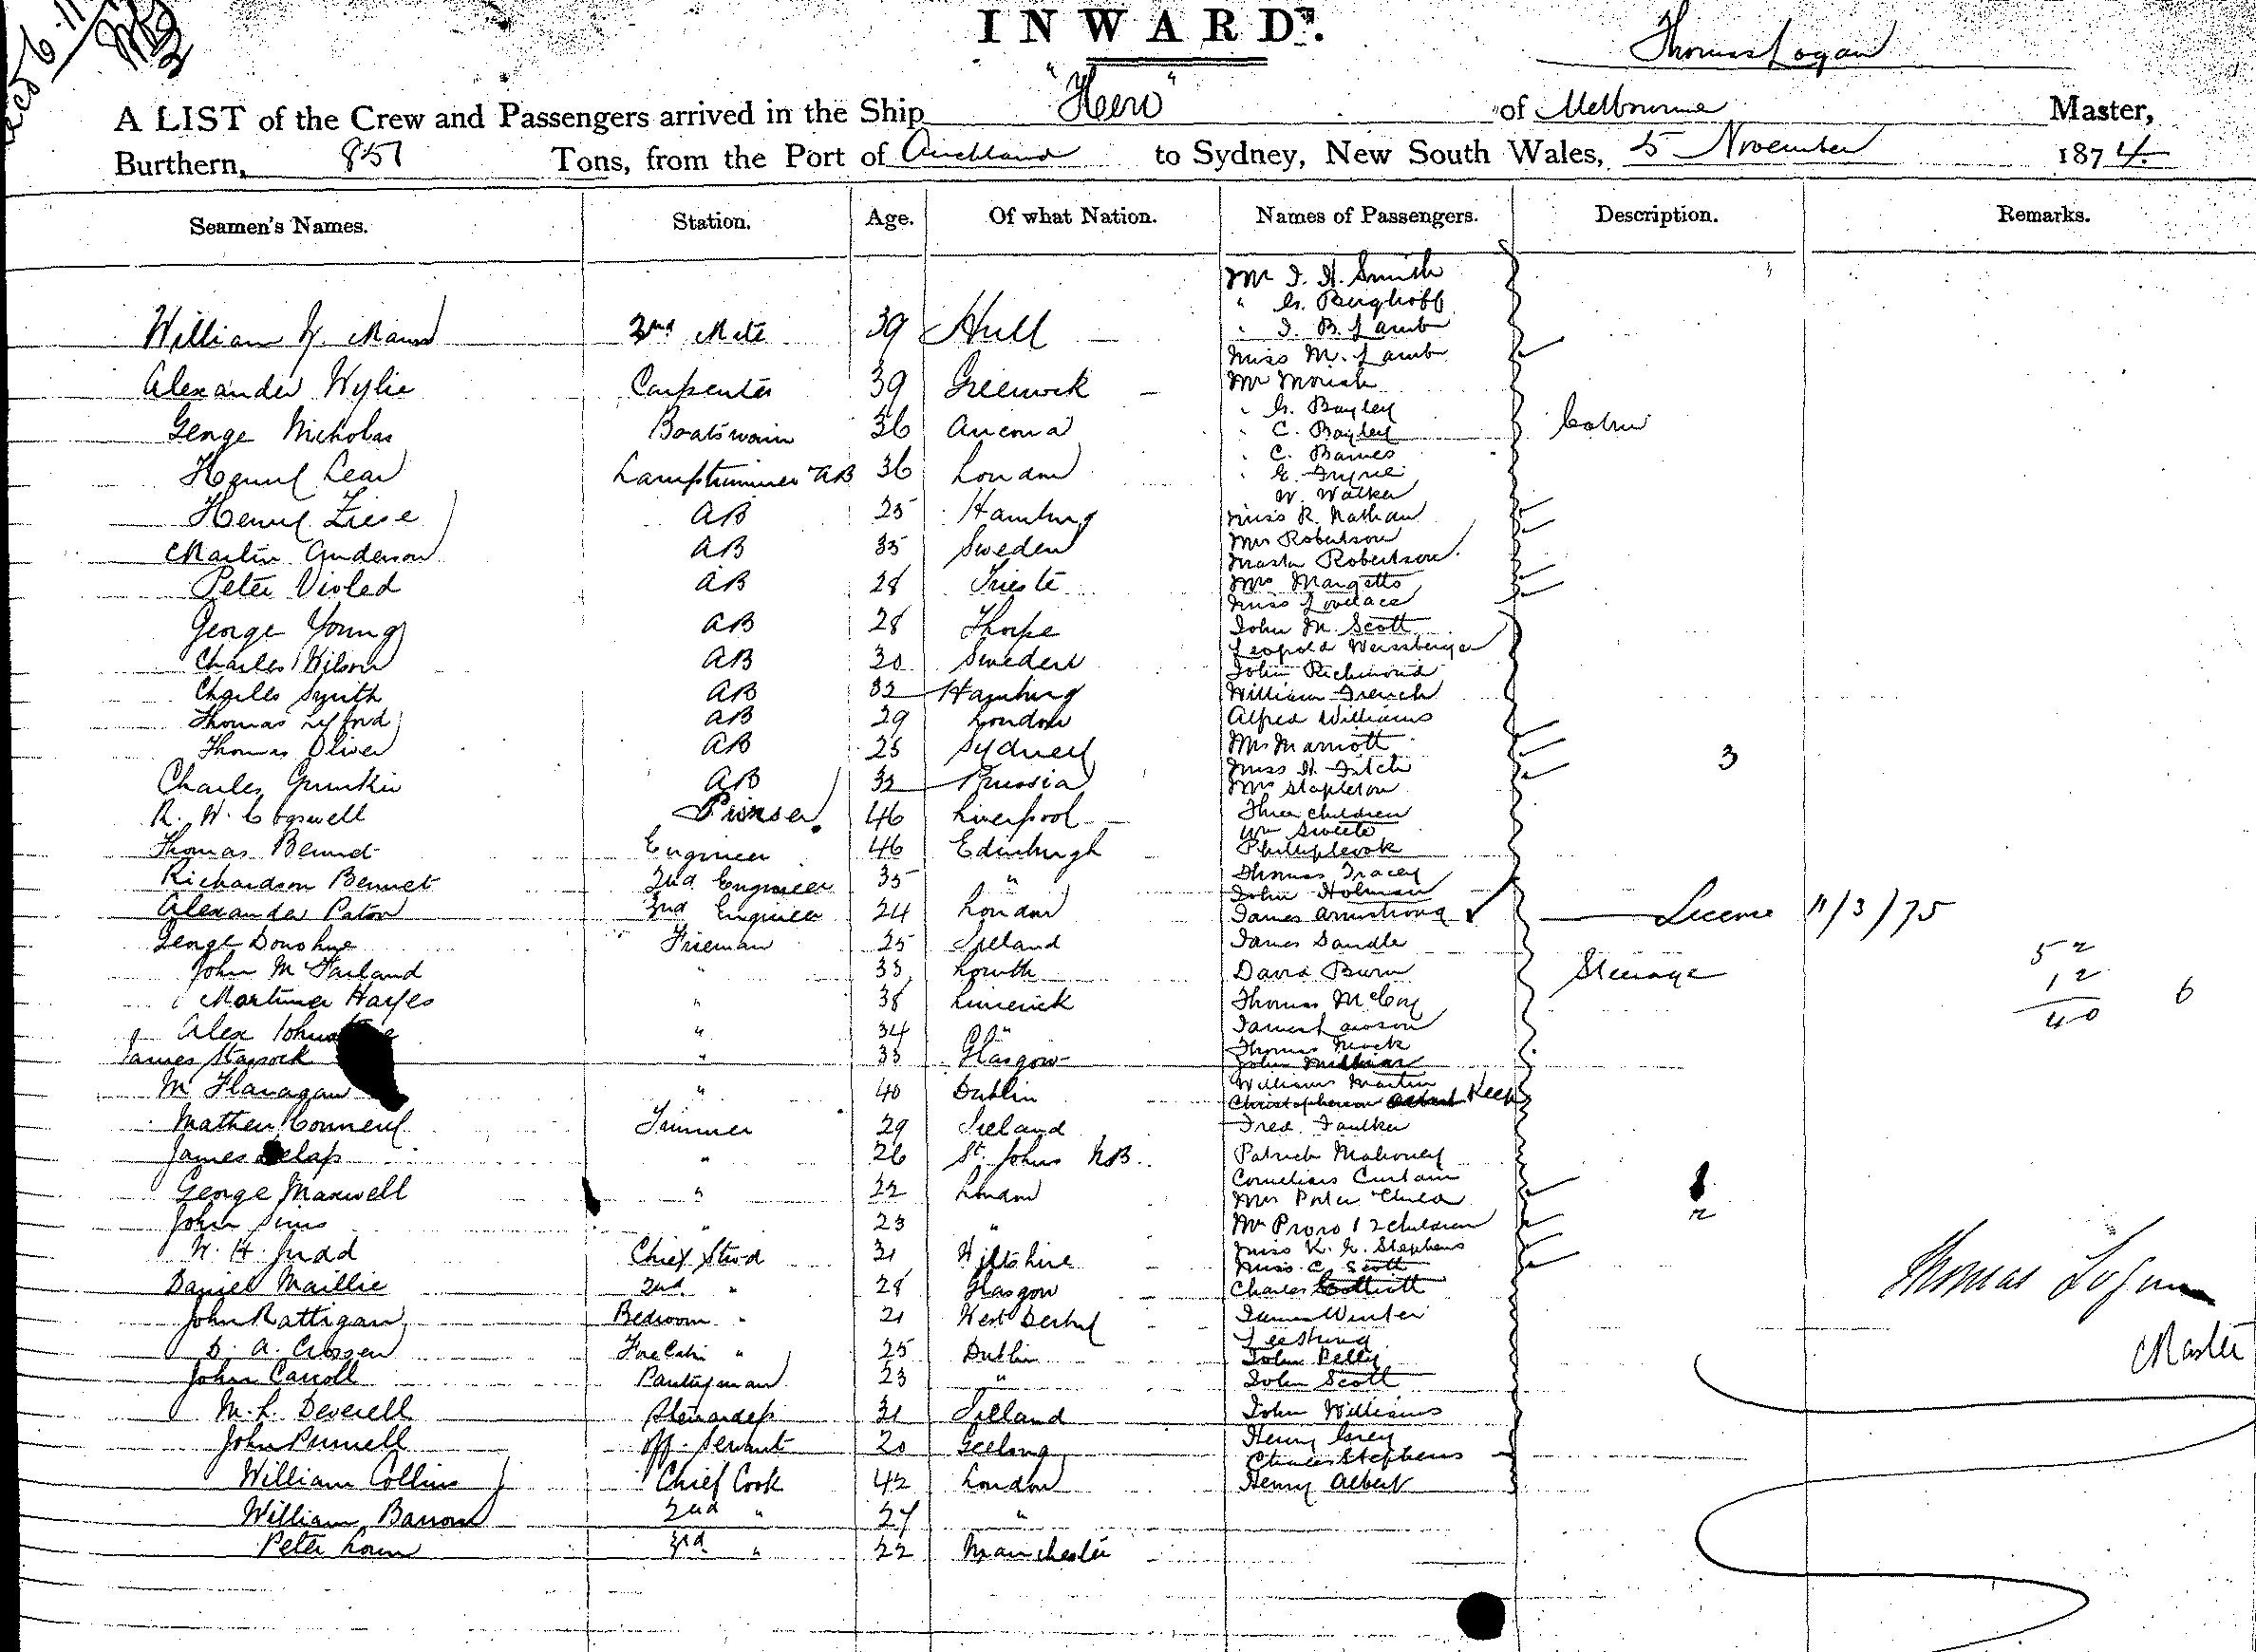 INWARD.
Thomas Logan
A LIST of the Crew and Passengers arrived in the Ship "Hero" of Melbourne Master,
Burthern, 851 Tons, from the Port of Auckland to Sydney, New South Wales, 5 November 1874
Seamen's Names. Station. Age. Of what Nation. Names of Passengers. Description. Remarks.
Mr I. H. Smith
" G. Berghoff
William 2nd Mate 39 Hull
" I. B. Lamb
Miss M. Lamb
Alexander Wylie Carpenter 39 Greenock
Mr
" G. Bayley
George Nicholas Boatswain 36 Ancona
" C. Bayley
Cabin
" C. Baines
Henry Lear Lamptrimmer AB 36 London
" E.
W. Walker
Henry Ziese AB 25 Hamburg
Miss R. Nathan
Mrs Robertson
Martin Anderson AB 35 Sweden
Master Robertson
Peter Violed AB 28 Trieste
Mrs Margetts
Miss Lovelace
George Young AB 28 Thorpe
John M. Scott
Leopold Weissberger
Charles Wilson AB 30 Sweden
John Richmond
Charles Smith AB 32 Hamburg
William French
Thomas Lyford AB 29 London
Alfred Williams
Thomas Oliver AB 25 Sydney
Mrs Marriott 3
Miss H. Fitch
Charles AB 32 Russia
Mrs Stapleton
R. W. Cogswell Purser 46 Liverpool
Three children
Wm Sweete
Thomas Bennet Engineer 46 Edinburgh
Philip Cook
Richardson Bennet 2nd Engineer 35 "
Thomas Tracey
John Holman
Alexander Paton 3rd Engineer 24 London
James Armstrong License 11/3/75
George Donohue Fireman 25 Ireland
James Sandle
52
John McFarland " 33 Louth
David Burn
Steerage
12
Mortimer Hayes " 38 Limerick
Thomas McCoy
6
40
Alex " 34 "
James Lawson
Thomas
James " 33 Glasgow
John
M. Flanagan " 40 Dublin
William Martin
Christopherson Keep
Mathew Trimmer 29 Ireland
Fred. Faulker
James Delap " 26 St. Johns NB.
Patrick Mahoney
Cornelius Curtain
George Maxwell " 22 London
Mrs Porter Child
2
John Sims " 23 "
2 children
W. H. Judd Chief Stwd 31 Wiltshire
Miss K. G. Stephens
Miss C. Scott
Daniel Maillie 2nd " 28 Glasgow
Charles
Thomas Logan
Master
John Rattigan Bedroom " 21 West Derby
James Winter
Lee Shing
D. A. Crossen Fore Cabin " 25 Dublin
John Pelly
John Carroll Pantryman 23 "
John Scott
M. L. Deverell Stewardess 31 Ireland
John Williams
John Purnell Off. Servant 20 Geelong
Henry Grey
Charles Stephens
William Collins Chief Cook 42 London
Henry Albert
William Barron 2nd " 24 "
Peter 3rd " 22 Manchester